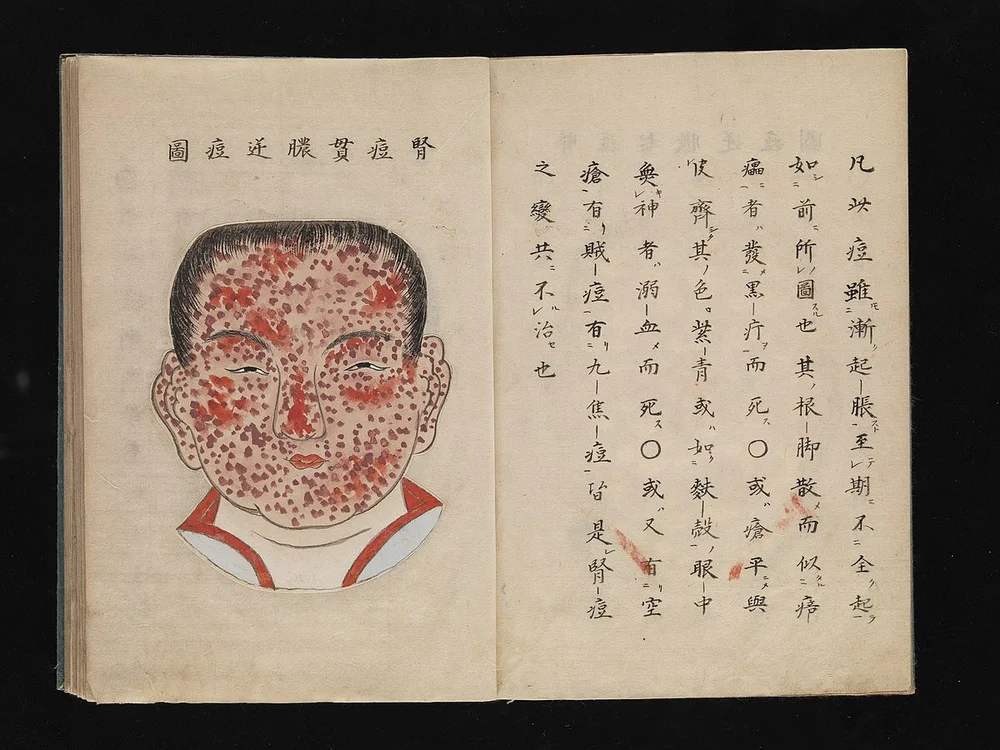 凡此痘雖漸起脹至期不全起
如前所圖也其根脚散而似
者發黒疔而死○或瘡平與
皮齊其色蒸青或如麩殼眼中
無神者溺血而死○或又有空
瘡有賊痘有九焦痘皆是腎痘
之變共不治也
腎痘貫膿逆痘圖